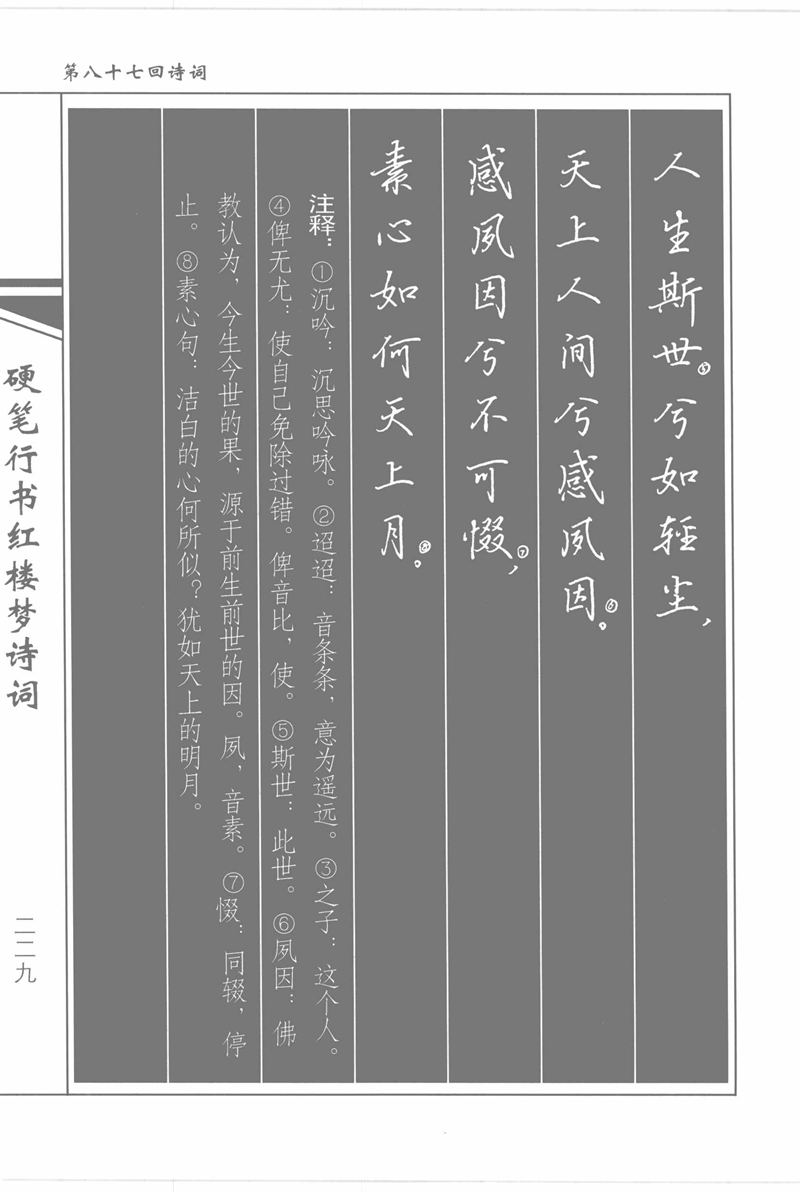 第八十七回诗词
人生斯世⑤兮如轻尘,
天上人间兮感夙因⑥。
感夙因兮不可惙⑦,
素心如何天上月⑧。
注释：①沉吟：沉思吟咏。②迢迢：音条条，意为遥远。③之子：这个人。
④俾无尤：使自己免除过错。俾音比，使。⑤斯世：此世。⑥夙因：佛
教认为，今生今世的果，源于前生前世的因。夙，音素。⑦惙：同辍，停
止。⑧素心句：洁白的心何所似？犹如天上的明月。
硬笔行书红楼梦诗词
二二九